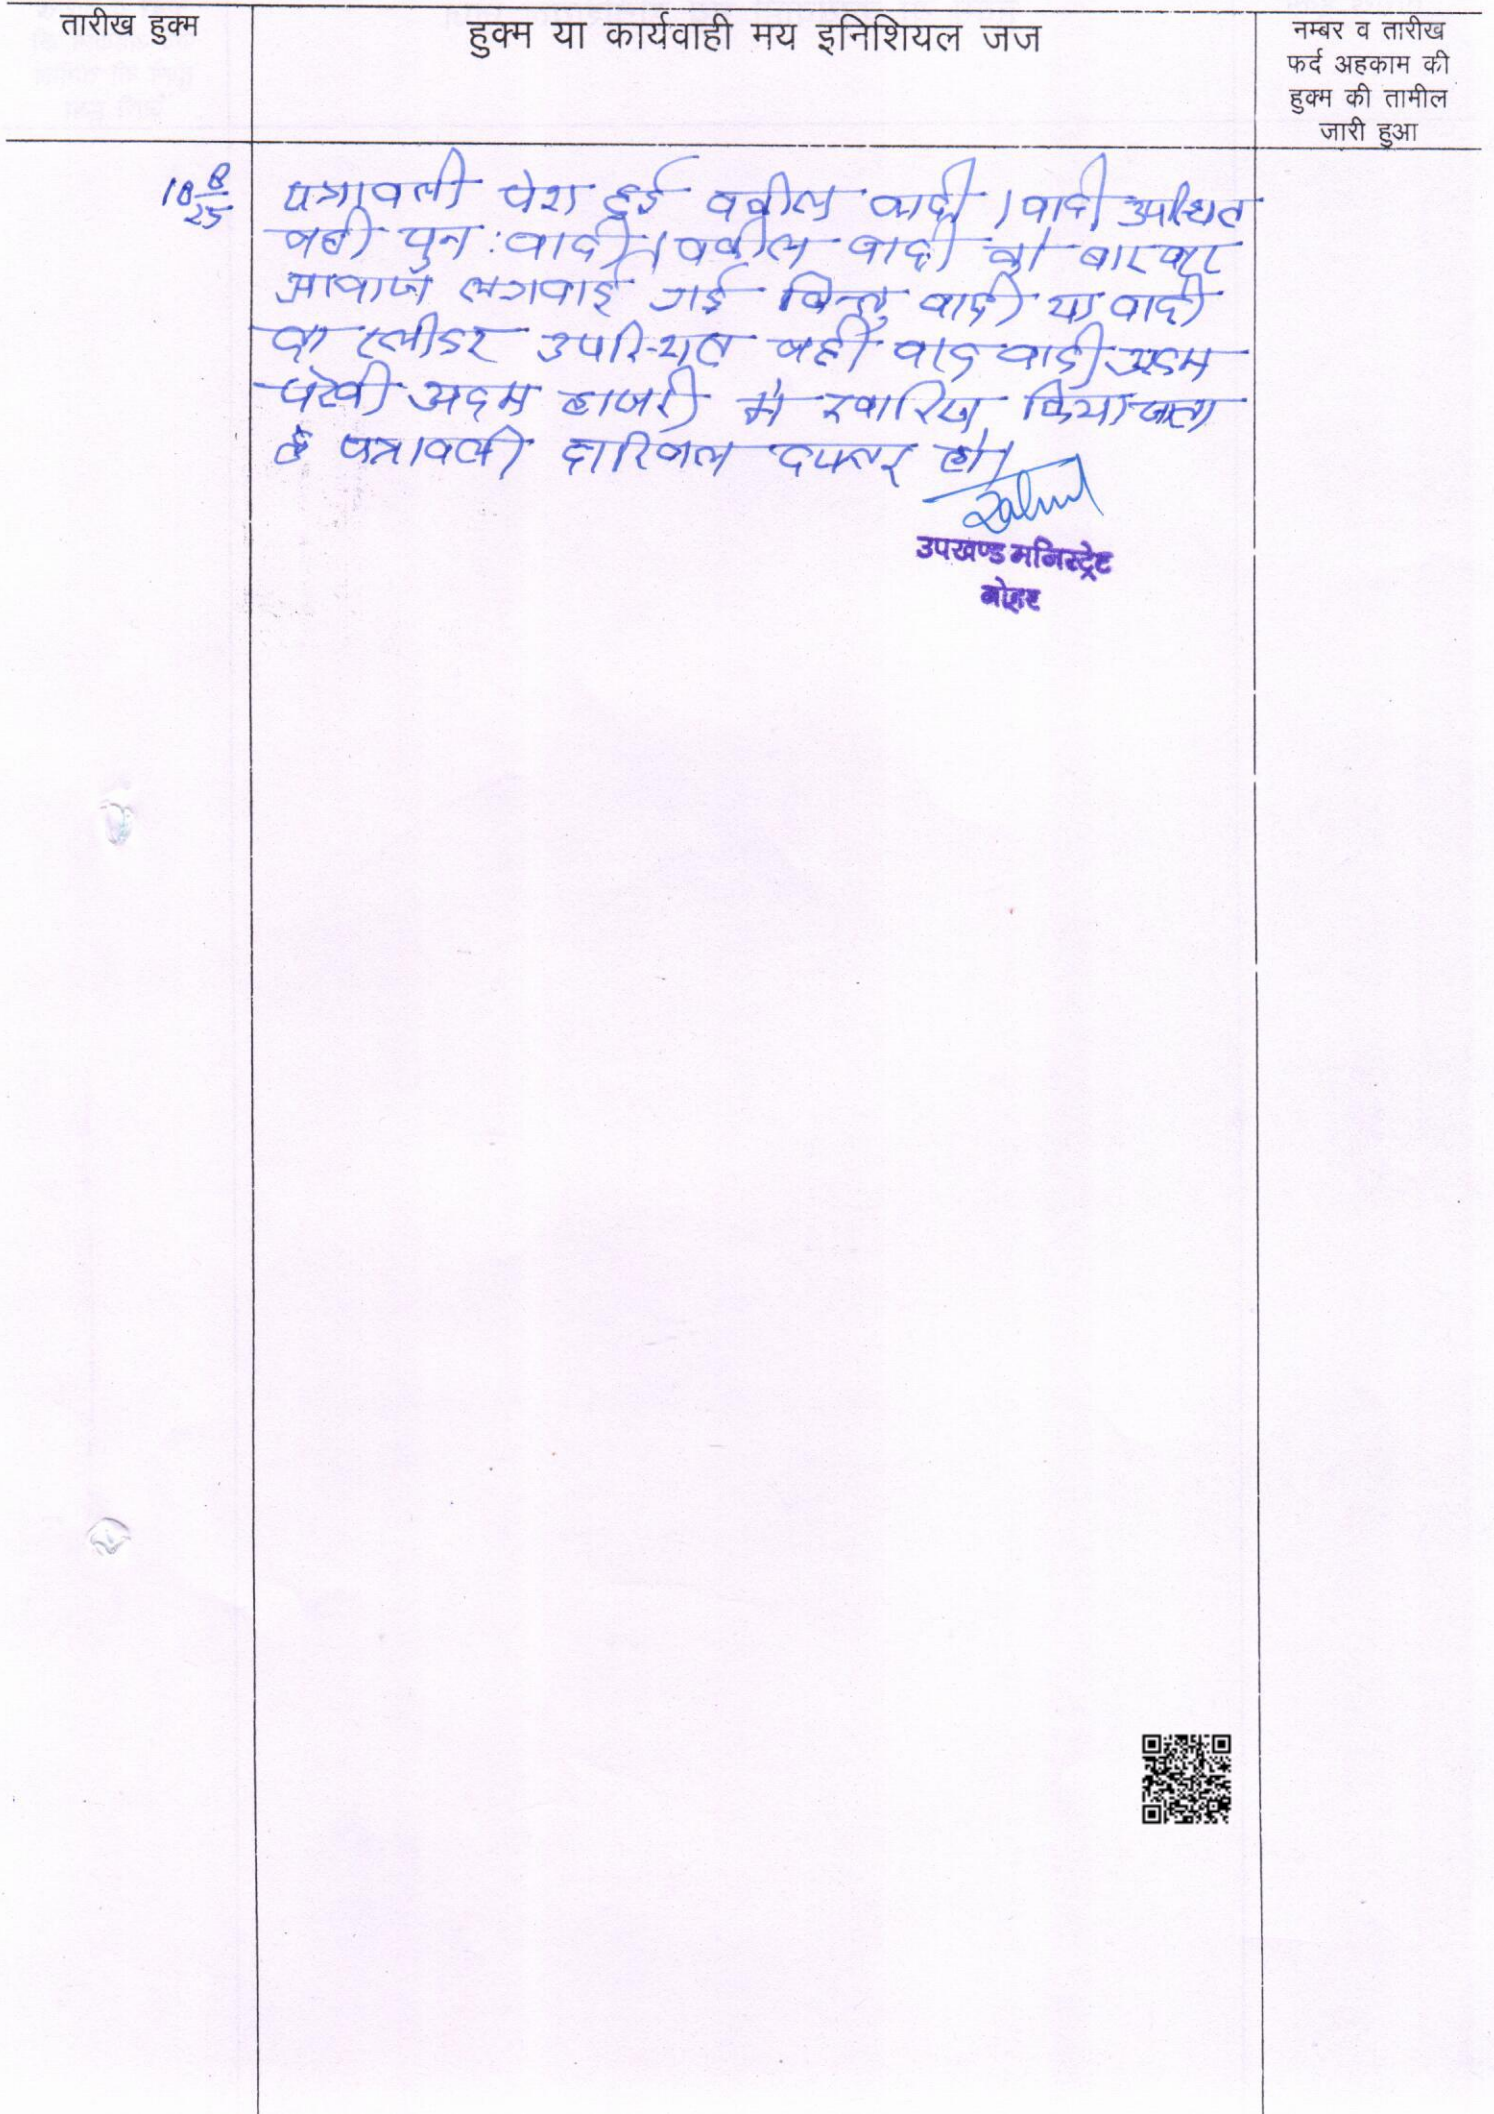 तारीख हुक्म
हुक्म या कार्यवाही मय इनिशियल जज
नम्बर व तारीख
फर्द अहकाम की
हुक्म की तामील
जारी हुआ
18/8/25
पत्रावली पेश हुई वकील वादी / वादी उपस्थित
नही पुन: वादी / वकील वादी को बारबार
आवाजे लगवाई गई किन्तु वादी या वादी
का प्लीडर उपस्थित नही वाद वादी अदम
पैरवी अदम हाजरी मे खारिज किया जाता
है पत्रावली दाखिल दफ्तर हो।
उपखण्ड मजिस्ट्रेट
नोहर